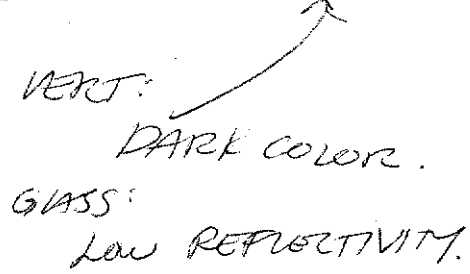 VERT:
DARK COLOR.
GLASS:
LOW REFLECTIVITY.